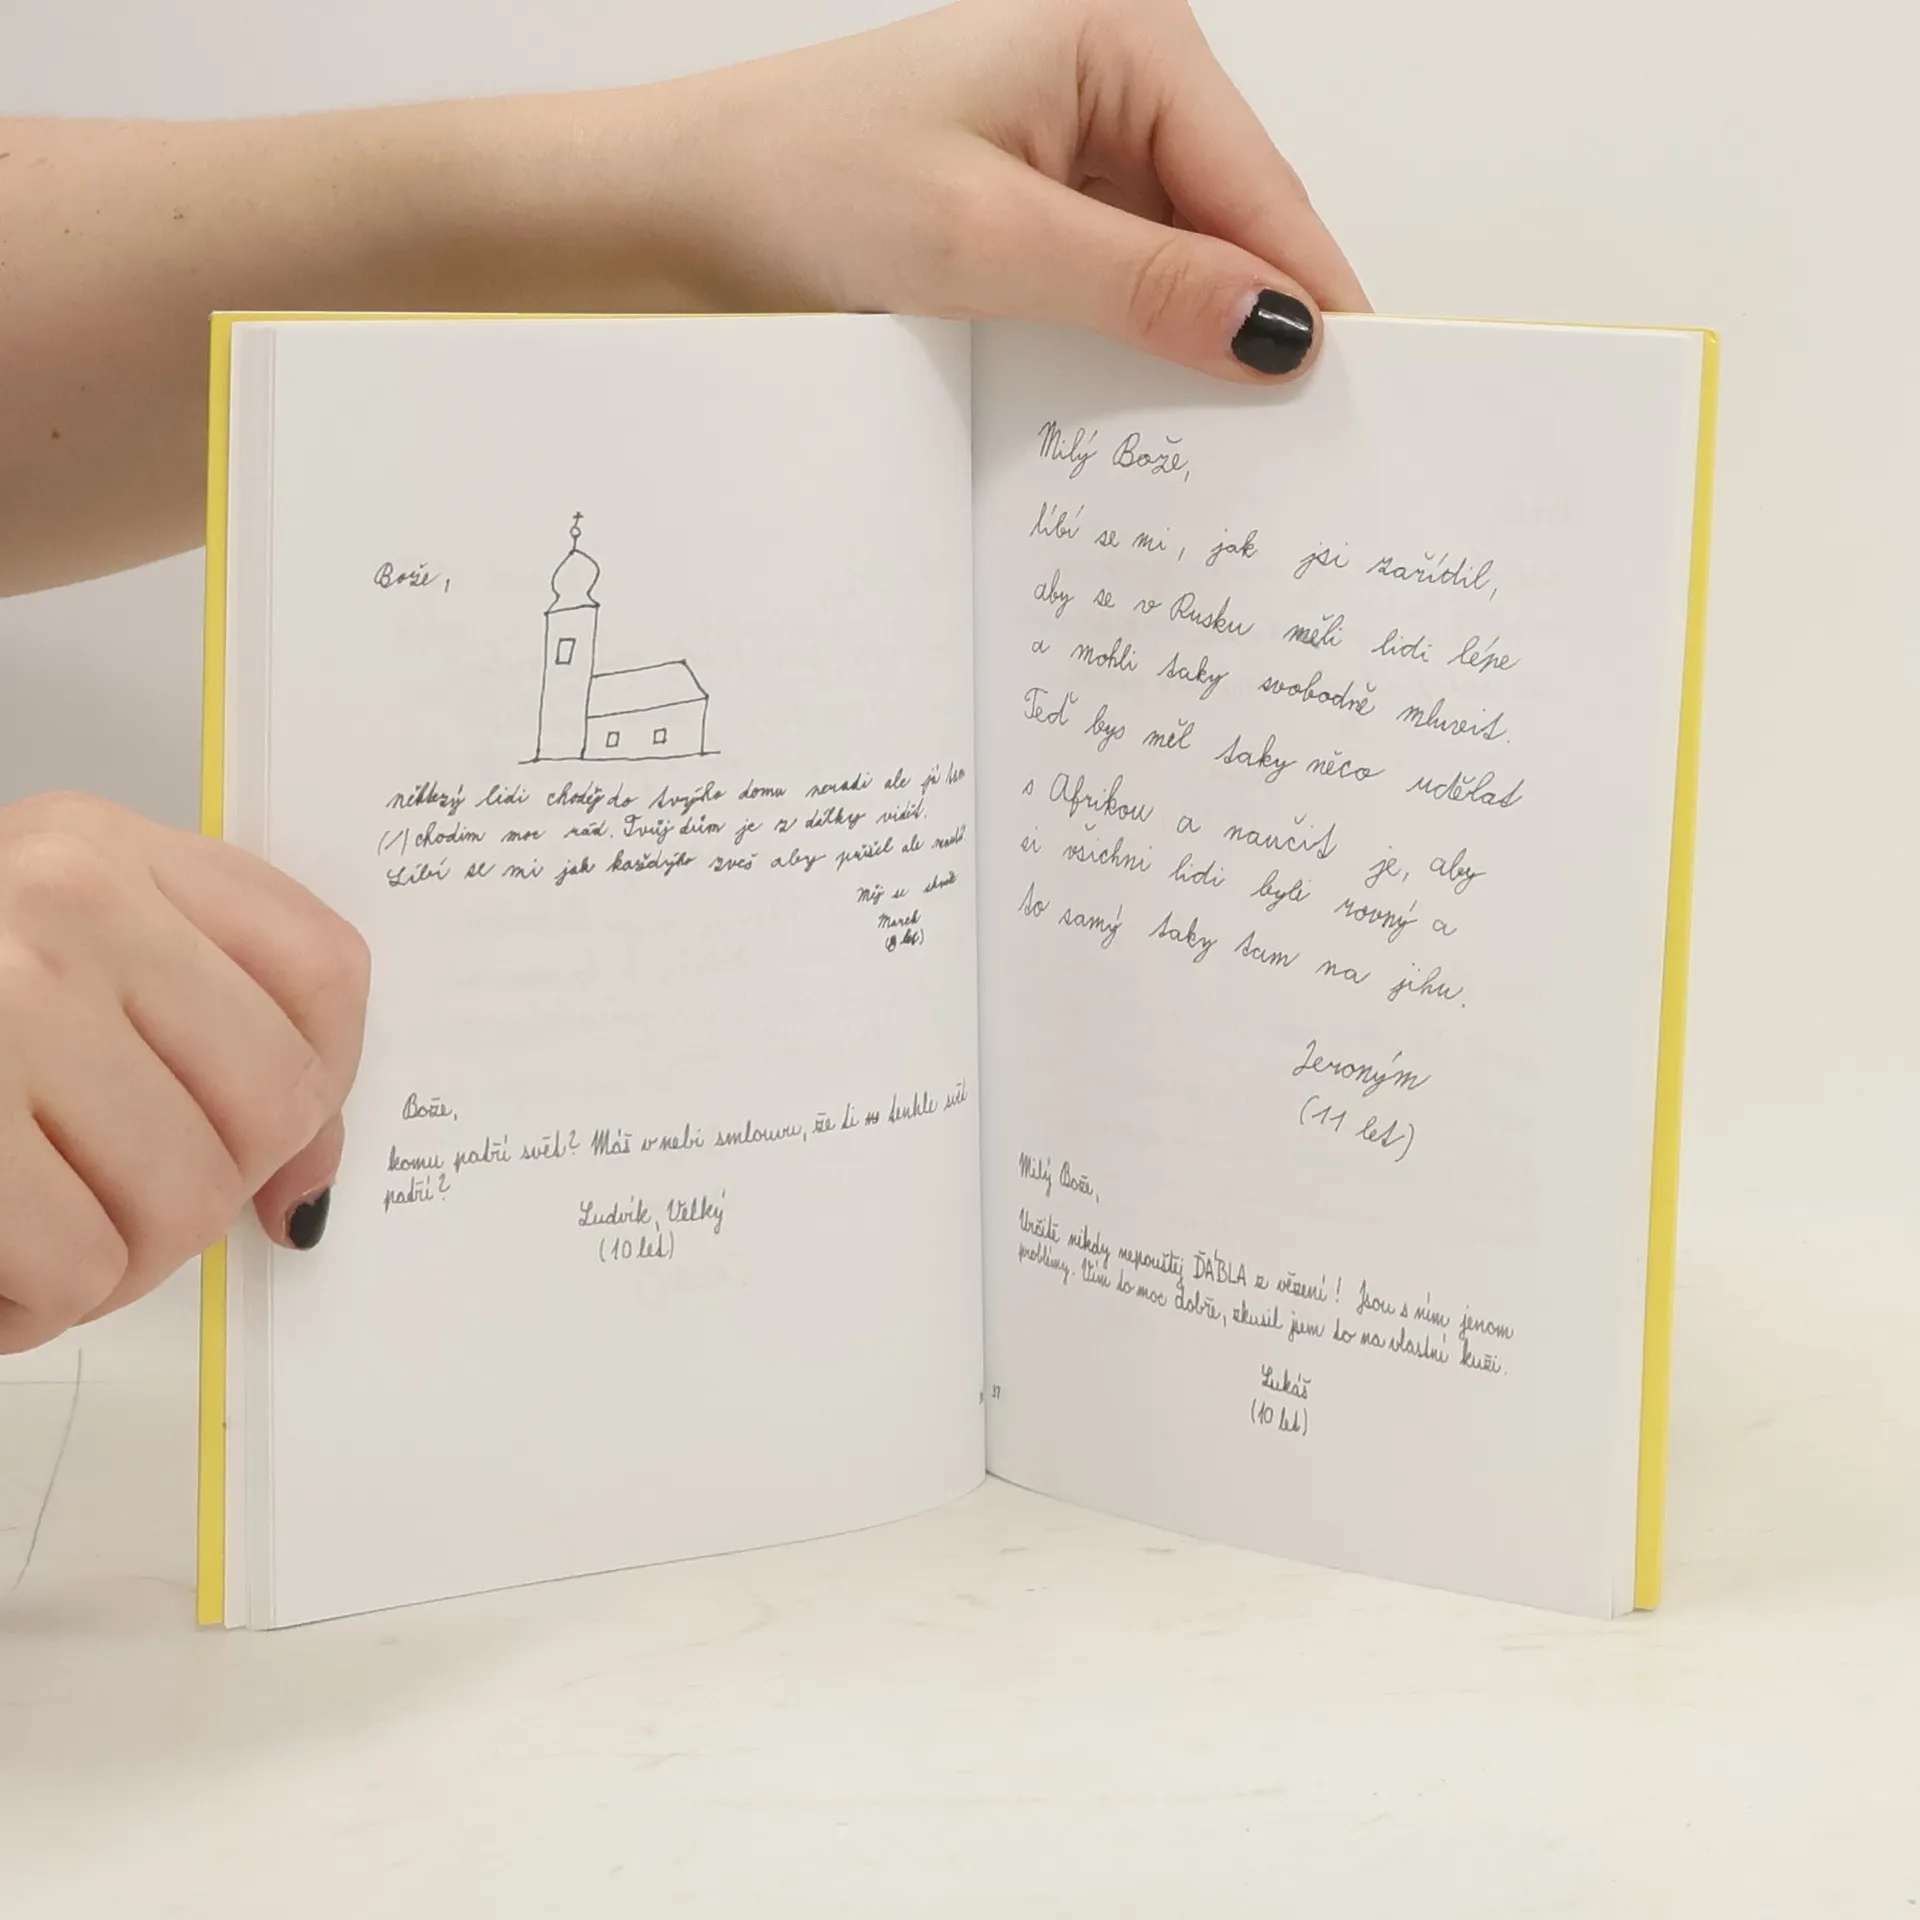 Bože,
některý lidi choděj do tvýho domu neradi ale já
(/) chodim moc rád. Tvůj dům je z dálky vidět.
Líbí se mi jak každýho zveš aby přišel ale
Měj se
Marek
(8 let)
Bože,
komu patří svět? Máš v nebi smlouvu, že ti tenhle svět
patří?
Ludvík, Velký
(10 let)
Milý Bože,
líbí se mi, jak jsi zařídil,
aby se v Rusku měli lidi lépe
a mohli taky svobodně mluvit.
Teď bys měl taky něco udělat
s Afrikou a naučit je, aby
si všichni lidi byli rovný a
to samý taky tam na jihu.
Jeroným
(11 let)
Milý Bože,
Určitě nikdy nepouštěj ĎÁBLA z vězení! Jsou s ním jenom
problémy. Vím to moc dobře, zkusil jsem to na vlastní kuži.
Lukáš
(10 let)
37